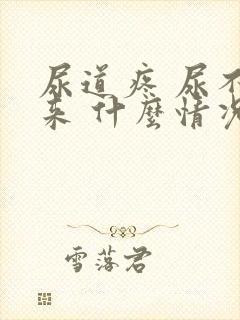 尿道疼 尿不
来 什麽情况
雪落君